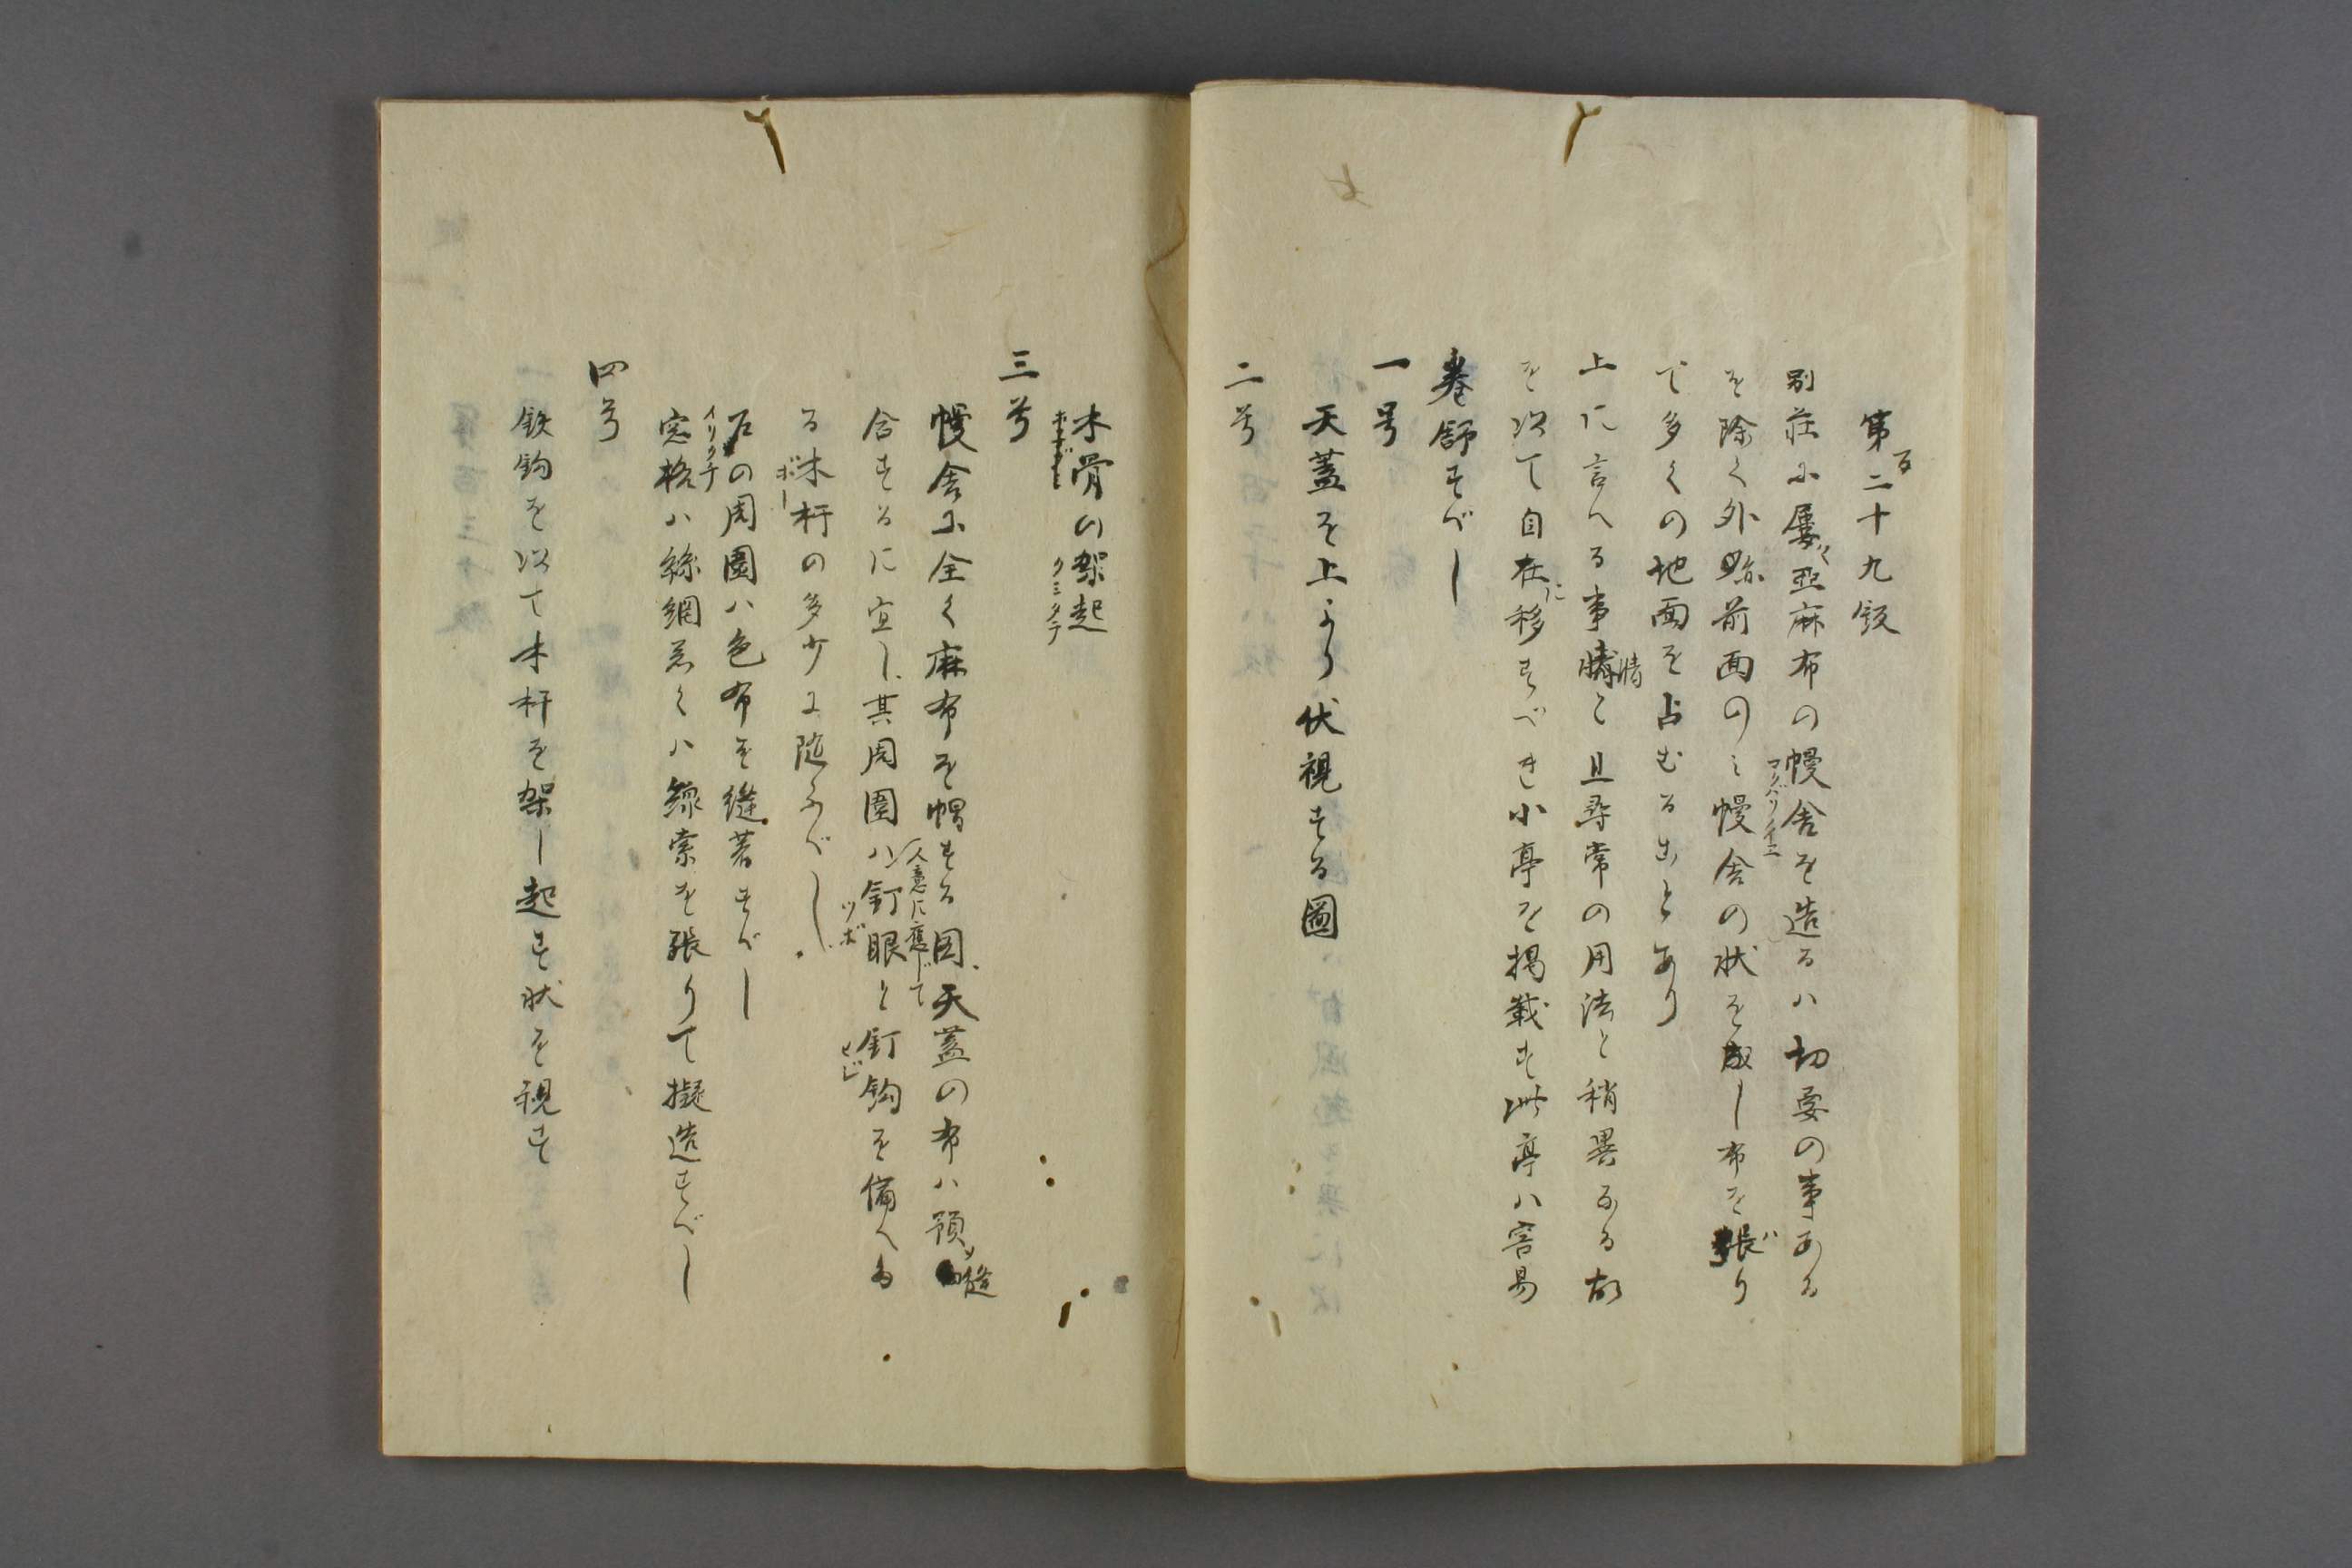 第百二十九版
別荘に屡〻亜麻布の幔舎を造るハ切要の事ある
を除く外縣前面のミ幔舎の状を成し布を張り
て多くの地面を占むるヿとあり
上に言へる事情と且尋常の用法と稍異なる故
を以て自在に移すべき小亭を掲載す此亭ハ容易
巻舒すべし
一号
天蓋を上より伏視する圖
二号
木骨の架起 クミタテ
三号
幔舎に全く麻布を帽する図、天蓋の布ハ預メ縫
合するに宜し、其周圍ハ人意に應じて釘眼 ツボ と釘鈎を備へる
る木杆 ボー の多少に随ふべし
戸 イリクチ の周圍ハ色布を縫著すべし
窓格ハ絲網若くハ線索を張りて擬造すべし
四号
鉄鈎を以て木杆を架し起す状を視す